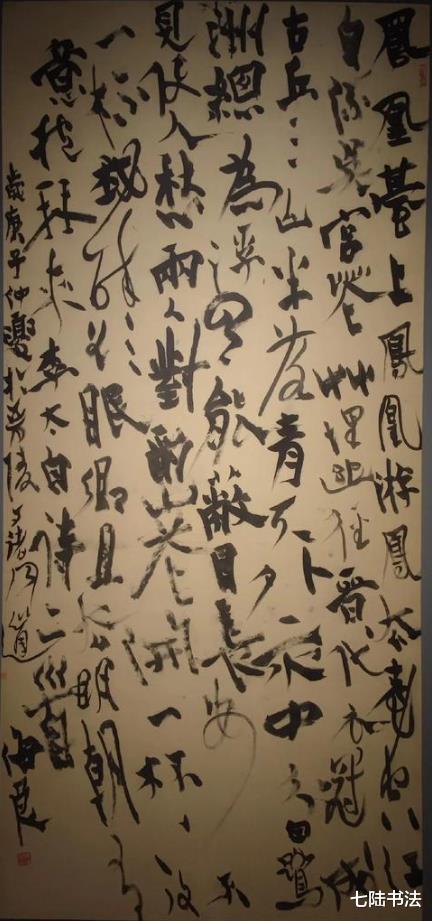 鳳凰臺上鳳凰游鳳去臺空江
自流吳宮花艸埋幽径晉代衣冠成
古丘三山半落青天外一水中分白鷺
洲總為浮雲能蔽日長安不
見使人愁兩人對酌山花開一杯一杯復
一杯我醉欲眠卿且去明朝有
意抱琴来李太白詩二首
歲庚子仲夏於
七陆书法